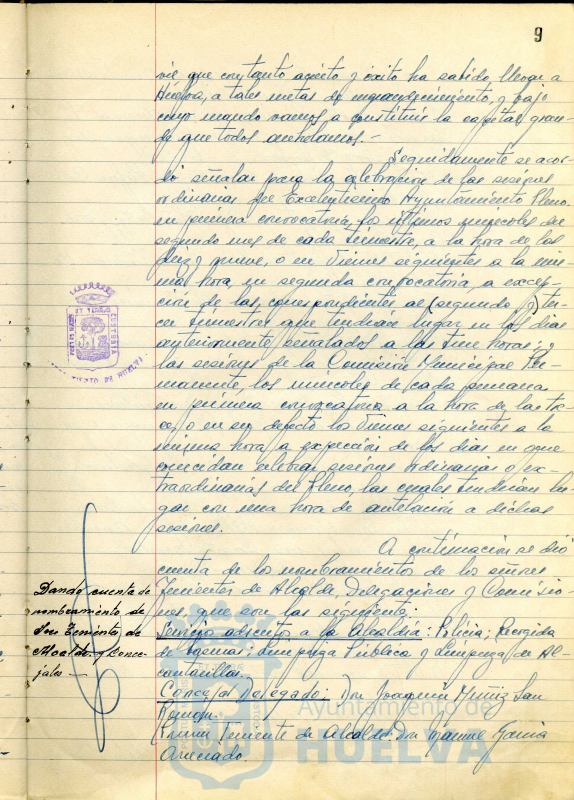 9
vil que con tanto acierto y éxito ha sabido llevar a
Huelva, a tales metas de engrandecimiento, y bajo
cuyo mando vamos a constituir la capital gran-
de que todos anhelamos.-
Seguidamente se acor-
dó señalar para la celebración de las sesiones
ordinarias del Excelentísimo Ayuntamiento Pleno
en primera convocatoria, los últimos miercoles del
segundo mes de cada trimestre, a la hora de las
diez y nueve, o en Viernes siguientes a la mis-
ma hora en segunda convocatoria, a excep-
ción de las correspondientes al (segundo y) ter-
cer trimestres que tendrán lugar en los días
anteriormente señalados a las hora; y
las sesiones de la Comisión Municipal Per-
manente, los miércoles de cada semana
en primera convocatoria a la hora de las tre-
ce, o en su defecto los Viernes siguientes a la
misma hora, a excepción de los días en que
coincidan celebrar sesiones ordinarias o ex-
traordinarias del Pleno, las cuales tendrían lu-
gar con una hora de antelación a dichas
sesiones.
A continuación se dió
cuenta de los nombramientos de los señores
Tenientes de Alcalde, Delegaciones y Comisio-
nes, que son las siguientes:
Servicio adscritos a la Alcaldía: Policía; Recogida
de Basuras; Limpieza Pública y Limpieza de Al-
cantarillas.
Concejal Delegado: Don Joaquín Muñiz San
Román.
Primer Teniente de Alcalde: Don Manuel García
Dando cuenta de
nombramiento de
los Tenientes de
Alcalde y Conce-
jales.-
Ayuntamiento de
HUELVA